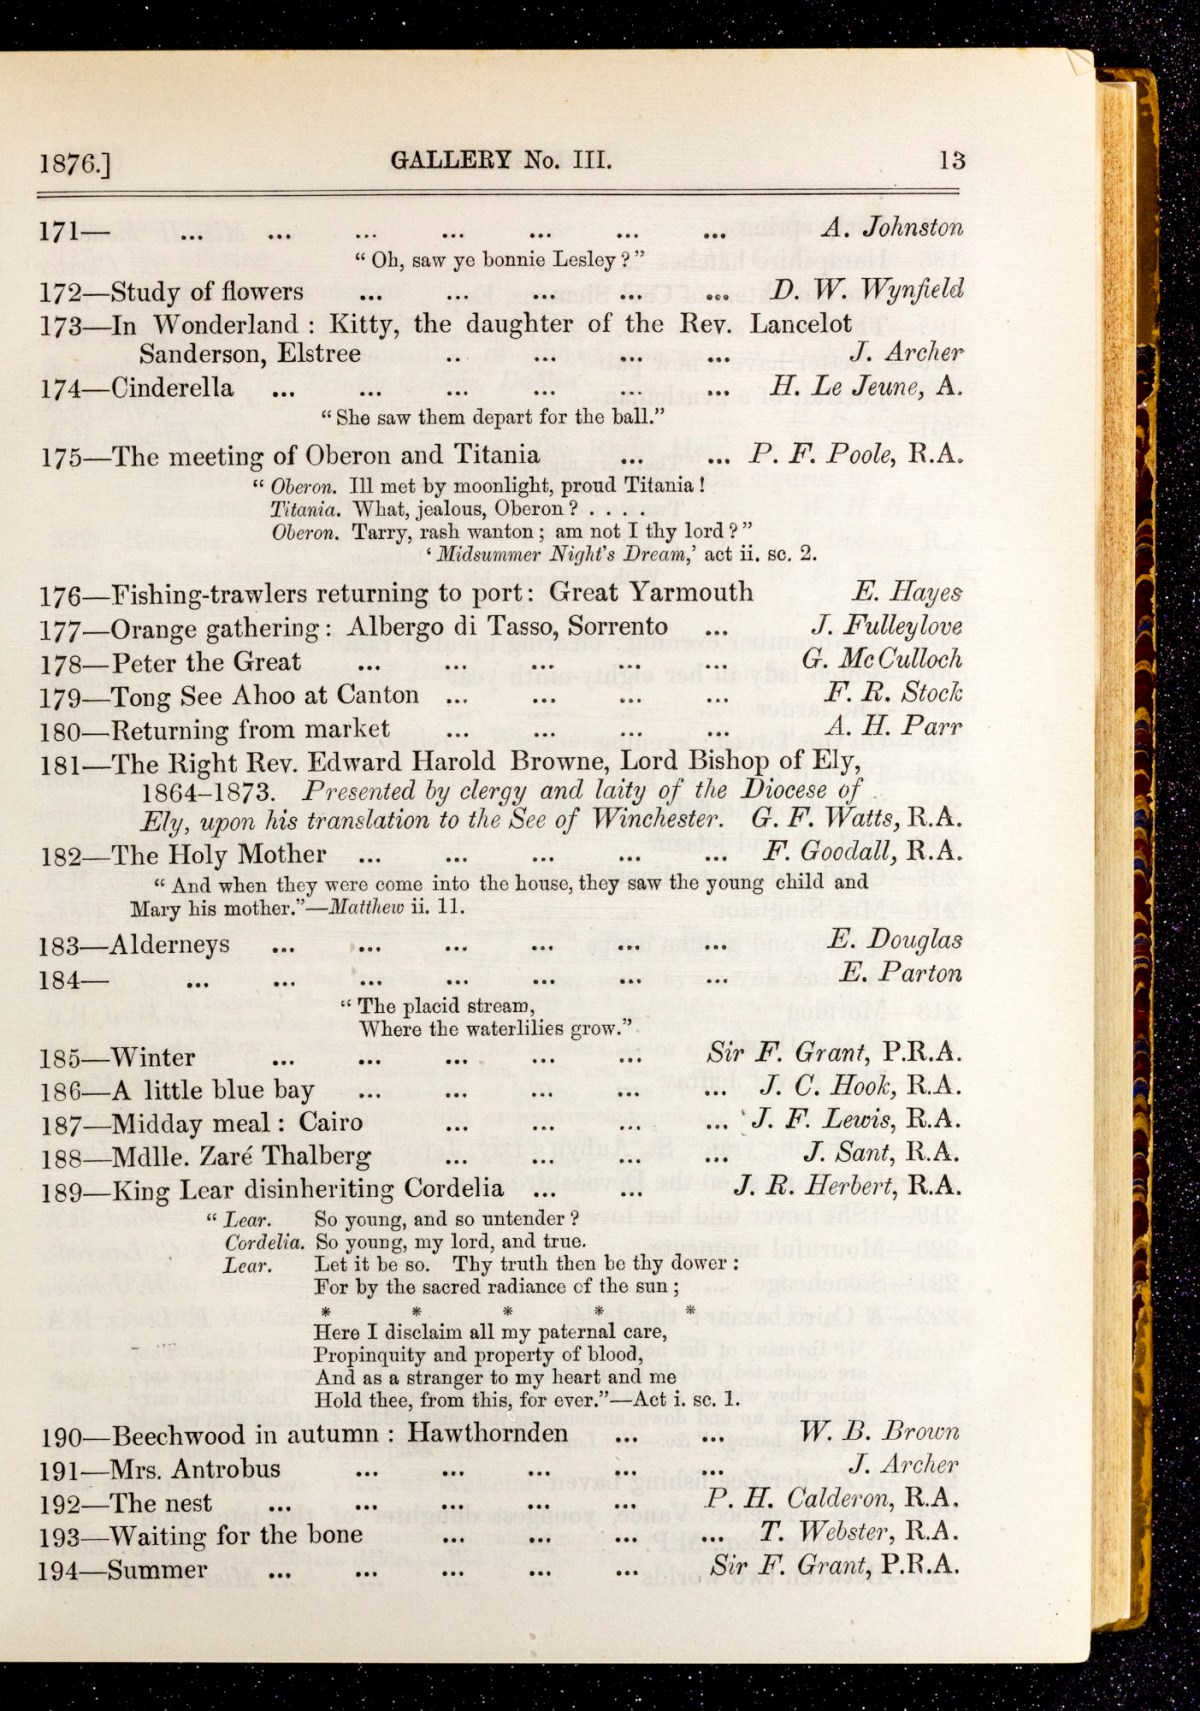 1876.] GALLERY No. III. 13
171— ... ... ... ... ... ... ... A. Johnston
“ Oh, saw ye bonnie Lesley ? ”
172—Study of flowers ... ... ... ... ... D. W. Wynfield
173—In Wonderland : Kitty, the daughter of the Rev. Lancelot
Sanderson, Elstree .. ... ... ... J. Archer
174—Cinderella ... ... ... ... ... ... H. Le Jeune, A.
“ She saw them depart for the ball.”
175—The meeting of Oberon and Titania ... ... P. F. Poole, R.A.
“ Oberon. Ill met by moonlight, proud Titania !
Titania. What, jealous, Oberon ? . . . .
Oberon. Tarry, rash wanton ; am not I thy lord ? ”
‘ Midsummer Night's Dream,’ act ii. sc. 2.
176—Fishing-trawlers returning to port : Great Yarmouth E. Hayes
177—Orange gathering : Albergo di Tasso, Sorrento ... J. Fulleylove
178—Peter the Great ... ... ... ... ... G. McCulloch
179—Tong See Ahoo at Canton ... ... ... ... F. R. Stock
180—Returning from market ... ... ... ... A. H. Parr
181—The Right Rev. Edward Harold Browne, Lord Bishop of Ely,
1864–1873. Presented by clergy and laity of the Diocese of
Ely, upon his translation to the See of Winchester. G. F. Watts, R.A.
182—The Holy Mother ... ... ... ... ... F. Goodall, R.A.
“ And when they were come into the house, they saw the young child and
Mary his mother.”—Matthew ii. 11.
183—Alderneys ... ... ... ... ... ... E. Douglas
184— ... ... ... ... ... ... ... E. Parton
“ The placid stream,
Where the waterlilies grow.”
185—Winter ... ... ... ... ... Sir F. Grant, P.R.A.
186—A little blue bay ... ... ... ... ... J. C. Hook, R.A.
187—Midday meal : Cairo ... ... ... ... J. F. Lewis, R.A.
188—Mdlle. Zaré Thalberg ... ... ... ... J. Sant, R.A.
189—King Lear disinheriting Cordelia ... ... J. R. Herbert, R.A.
“ Lear. So young, and so untender ?
Cordelia. So young, my lord, and true.
Lear. Let it be so. Thy truth then be thy dower :
For by the sacred radiance of the sun ;
* * * * *
Here I disclaim all my paternal care,
Propinquity and property of blood,
And as a stranger to my heart and me
Hold thee, from this, for ever.”—Act i. sc. 1.
190—Beechwood in autumn : Hawthornden ... ... W. B. Brown
191—Mrs. Antrobus ... ... ... ... ... J. Archer
192—The nest ... ... ... ... ... P. H. Calderon, R.A.
193—Waiting for the bone ... ... ... ... T. Webster, R.A.
194—Summer ... ... ... ... ... Sir F. Grant, P.R.A.